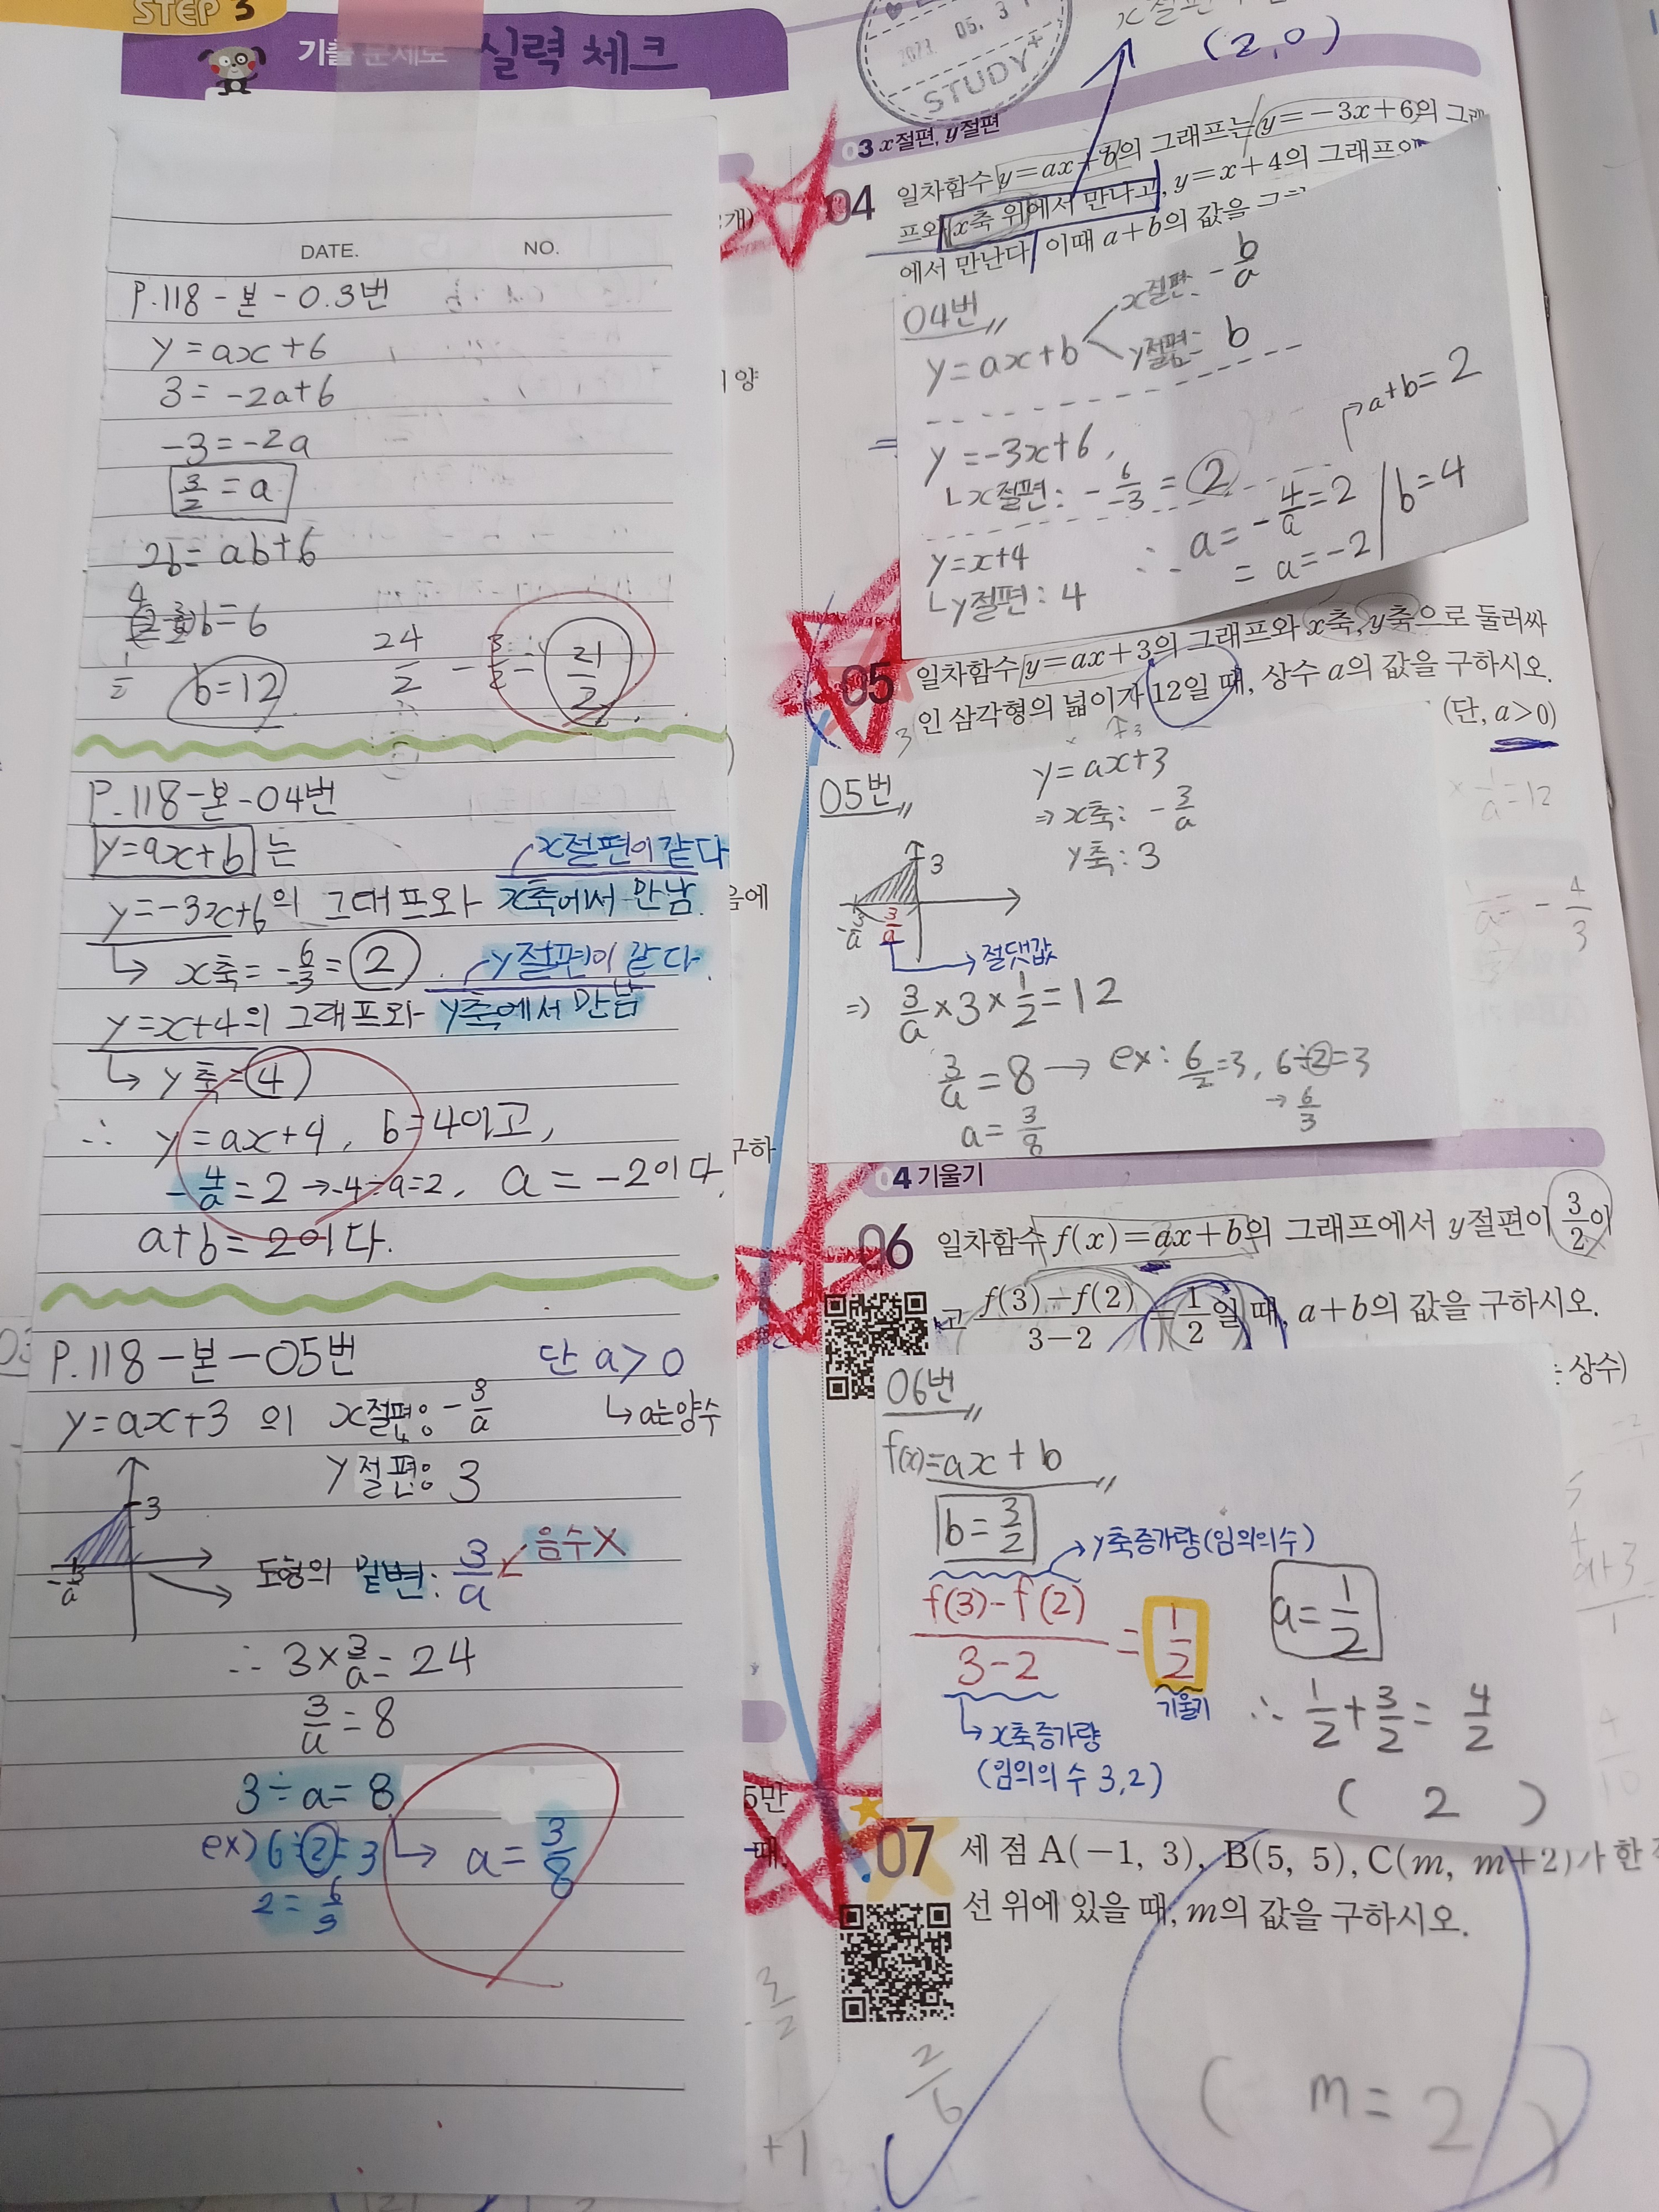 STEP 3
기출 문제로 실력 체크
DATE. NO.
P.118-본-03번
y=ax+6
3=-2a+6
-3=-2a
3/2=a
2b=ab+6
b=6
b=12
24/2-3/2=21/2
P.118-본-04번
y=ax+b는
x절편이 같다
y=-3x+6의 그래프와 x축에서 만남.
↳ x축=-6/-3=2
y절편이 같다.
y=x+4의 그래프와 y축에서 만남
↳ y축=4
∴ y=ax+4, b=4이고,
-4/a=2→-4÷a=2, a=-2이다.
a+b=2이다.
P.118-본-05번 단 a>0
y=ax+3의 x절편: -3/a ↳a는양수
y절편: 3
3
-3/a
도형의 밑변: 3/a 음수X
∴ 3×3/a=24
3/a=8
3÷a=8
ex) 6÷2=3 → a=3/8
2=6/3
2023. 05. 31
STUDY+
(2,0)
03 x절편, y절편
04 일차함수 y=ax+b의 그래프는 y=-3x+6의 그래
프와 x축 위에서 만나고, y=x+4의 그래프와
에서 만난다. 이때 a+b의 값을
04번
y=ax+b
x절편: -b/a
y절편: b
y=-3x+6,
ㄴx절편: -6/-3=2
y=x+4
ㄴy절편: 4
∴ a=-4/a=2 b=4
= a=-2
⇒a+b=2
05 일차함수 y=ax+3의 그래프와 x축, y축으로 둘러싸
인 삼각형의 넓이가 12일 때, 상수 a의 값을 구하시오.
(단, a>0)
05번
y=ax+3
⇒x축: -3/a
y축: 3
3
-3/a 3/a
→절댓값
⇒ 3/a×3×1/2=12
3/a=8→ex: 6/2=3, 6÷2=3
→6/3
a=3/8
04 기울기
06 일차함수 f(x)=ax+b의 그래프에서 y절편이 3/2이
고 f(3)-f(2)/3-2=1/2일 때, a+b의 값을 구하시오.
상수)
06번
f(x)=ax+b
b=3/2
y축증가량(임의의수)
f(3)-f(2)/3-2=1/2
기울기
a=1/2
↳x축증가량
(임의의 수 3,2)
∴ 1/2+3/2=4/2
( 2 )
07 세 점 A(-1, 3), B(5, 5), C(m, m+2)가 한
선 위에 있을 때, m의 값을 구하시오.
2/6
( m=2 )